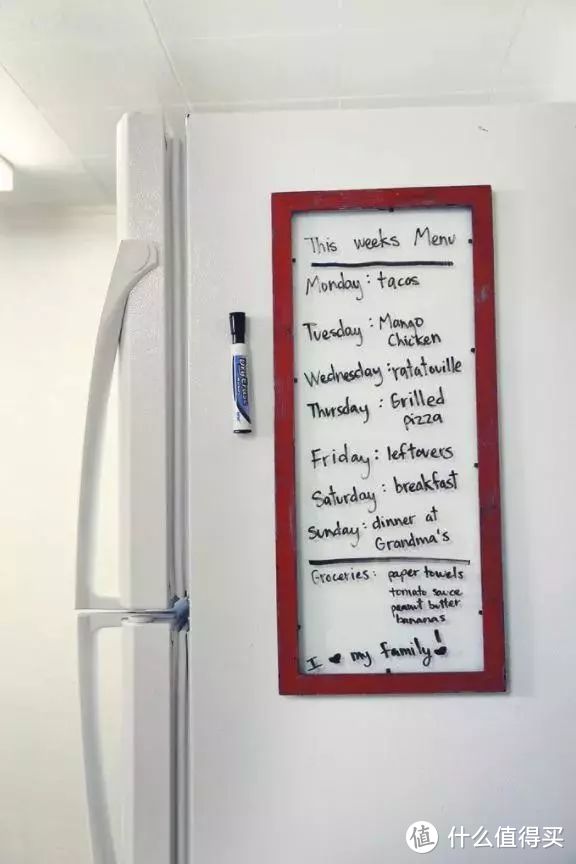 This weeks Menu
Monday: tacos
Tuesday: Mango
Chicken
Wednesday: ratatouille
Thursday: Grilled
pizza
Friday: leftovers
Saturday: breakfast
Sunday: dinner at
Grandma's
Groceries: paper towels
tomato sauce
peanut butter
bananas
I ♥ my family!
值 什么值得买